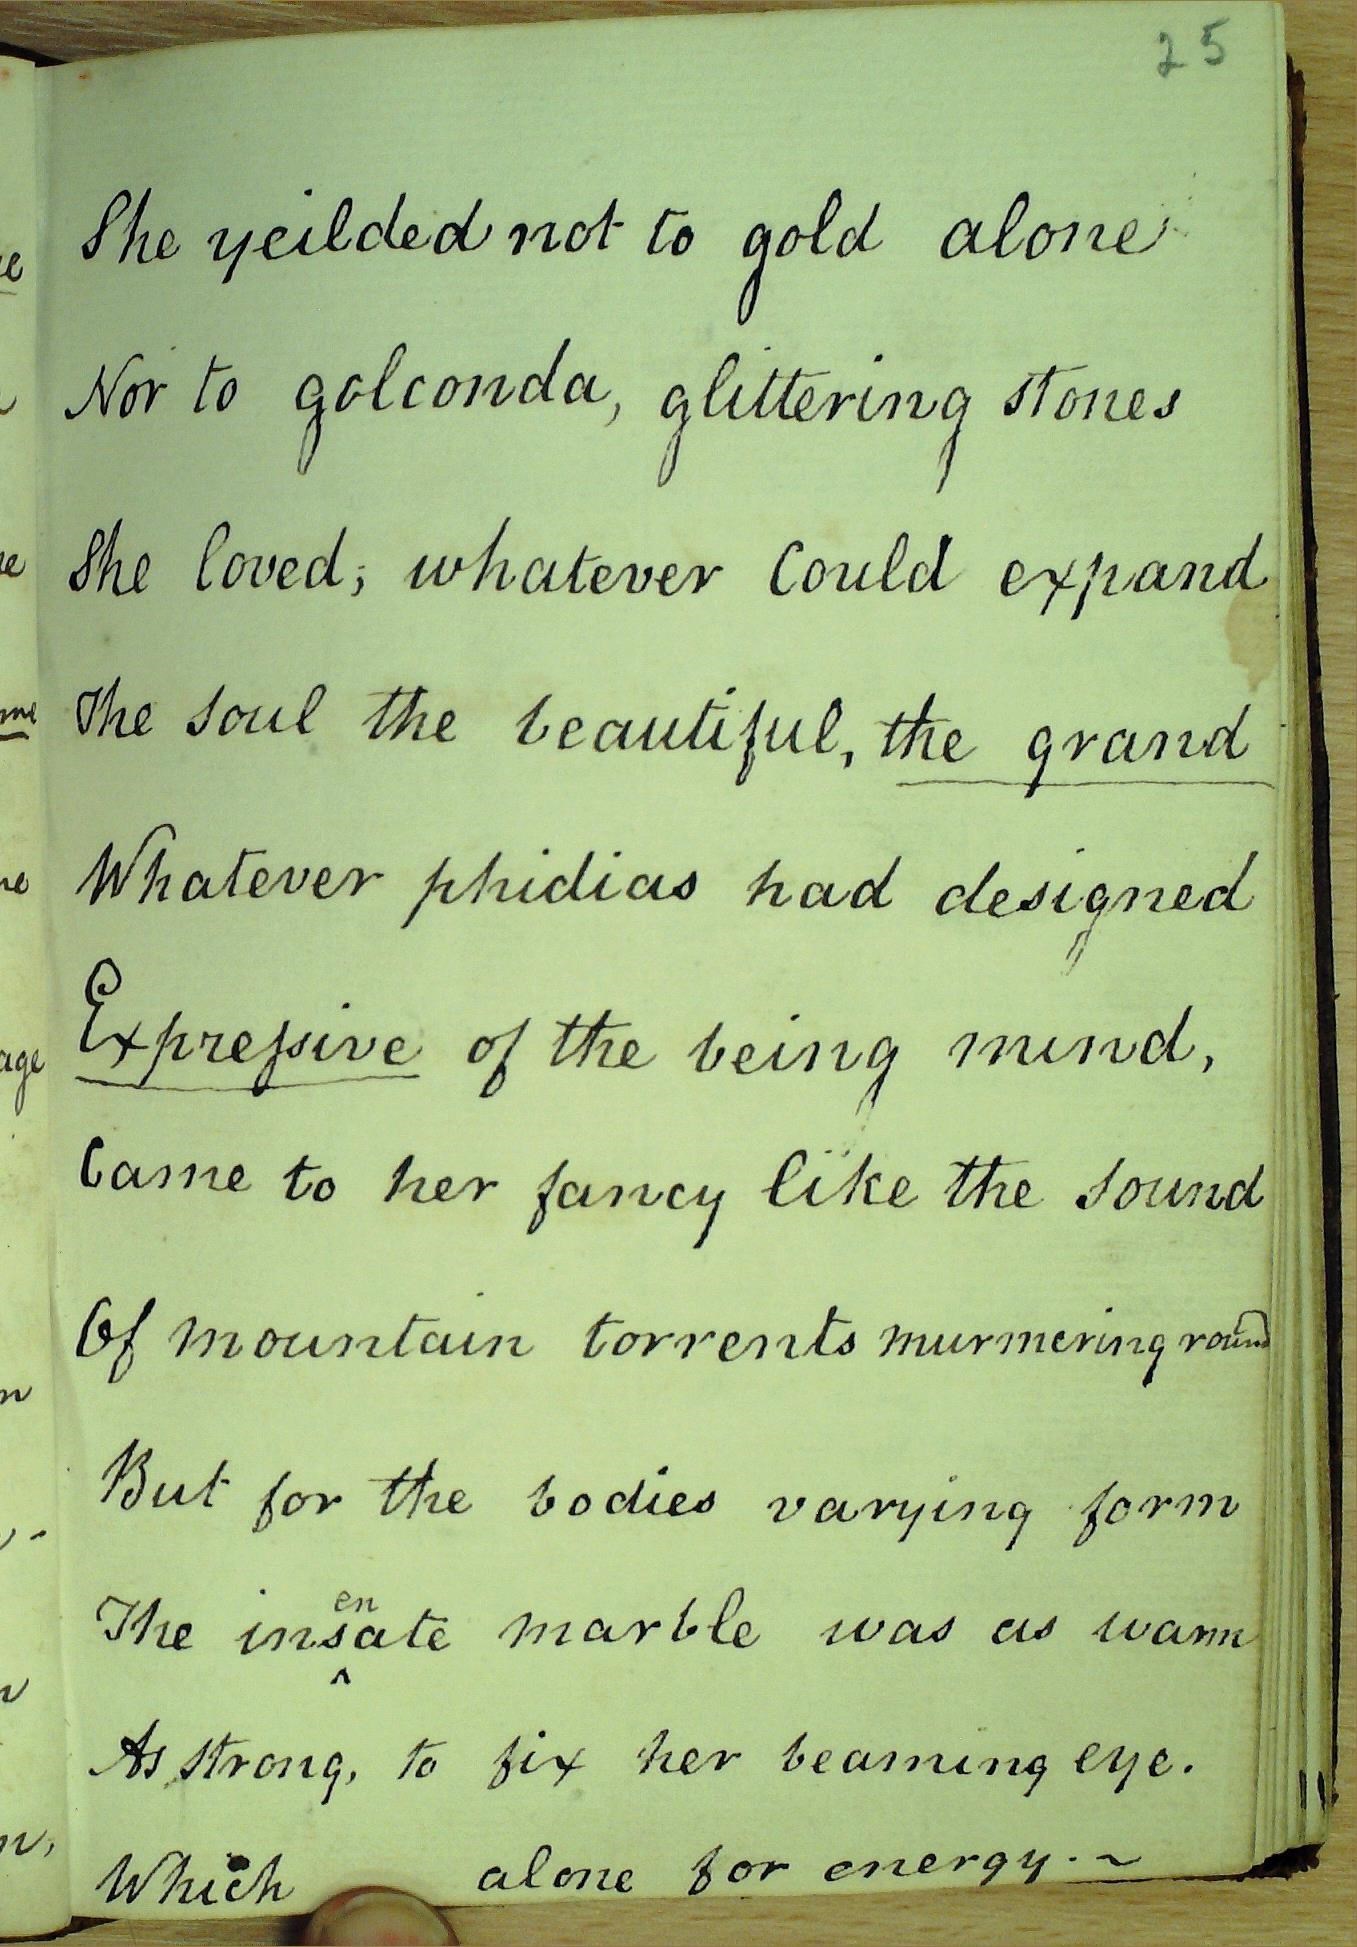 25
She yeilded not to gold alone
Nor to golconda, glittering stones
She loved; whatever Could expand
The soul the beautiful, the grand
Whatever phidias had designed
Expressive of the being mind,
Came to her fancy like the sound
Of mountain torrents murmering round
But for the bodies varying form
The insenate marble was as warm
As strong, to fix her beaming eye.
Which alone for energy. ~